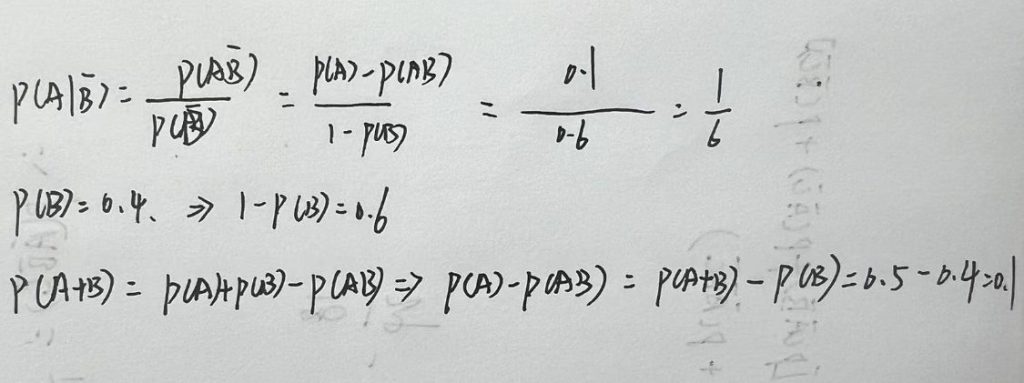 P(A|B̄) = P(AB̄)/P(B̄) = P(A)-P(AB)/1-P(B) = 0.1/0.6 = 1/6
P(B)=0.4、 ⇒ 1-P(B)=0.6
P(A+B) = P(A)+P(B)-P(AB) ⇒ P(A)-P(AB) = P(A+B)-P(B)=0.5-0.4=0.1